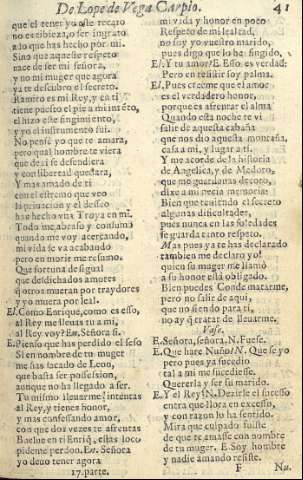 De Lope de Vega Carpio. 41
que el tener yo este recato
no es tibieza, o ser ingrato
a lo que has hecho por mi.
Sino que aqueste respeto
nace de ser mi señora,
y no mi muger que agora
ya te descubro el secreto.
Ramiro es mi Rey, y en ti
tiene puesto el pie a mi intento,
el hizo este fingimiento,
y yo el instrumento fui.
No pensè yo que te amara,
pero qual hombre te viera
que de ti se defendiera
y con libertad quedara,
Y mas amado de ti
con el estremo que veo
la priuacion y el desseo
han hecho vna Troya en mi.
Todo me abraso y consumo
quando me voy acercando,
mi vida se va acabando
pero en morir me resumo.
Que fortuna desigual
que desdichados amores
q otros mueran por traydores
y yo muera por leal.
El. Como Enrique, como es esso,
al Rey me lleuas tu a mi,
al Rey voy? En. Señora si.
E. Pienso que has perdido el seso
Si en nombre de tu muger
me has sacado de Leon,
que basta ser possession,
aunque no ha llegado a ser.
Tu mismo lleuarme intentas
al Rey, y tienes honor,
y mas confessando amor,
con que dos vezes te afrentas
Buelue en ti Enriq, estas loco
pideme perdon. En. Señora
yo deuo tener agora
17. parte.
mi vida y honor en poco
Respeto de mi lealtad,
no soy yo vuestro marido,
pues digo que lo he fingido,
El. Y tu amor? E. Esso es verdad;
Pero en resistir soy palma.
El. Pues creeme que el amor
es el verdadero honor,
porque es afrentar el alma
Quando esta noche te vi
salir de aquesta cabaña
que nos dio aquesta montaña,
casa a mi, y lugar a ti.
Y me acorde de la historia
de Angelica, y de Medoro,
que mo guardauas decoro,
dixe a mi necia memoria:
Bien que teniendo el secreto
algunas dificultades,
pues nunca en las soledades
se guarda tanto respeto.
Mas pues ya te has declarado
tambien me declaro yo!
quien su muger me llamò
a su honor està obligado.
Bien puedes Conde matarme,
pero no salir de aqui,
que no siendo para ti,
no ay q tratar de lleuarme.
Vase.
E. Señora, señora. N. Fuese.
E. Que harè Nuño? N. Que se yo
pero pues ya sucedio
tal a mi me sucediesse.
Quererla y ser su marido.
E. Y el Rey? N. Dezirle el sucesso
entra que llora en excesso,
y con razon lo ha sentido.
Mira que culpado fuiste
de que te amasse con nombre
de tu muger. E. Soy hombre
y nadie amando resiste.
F Nu.